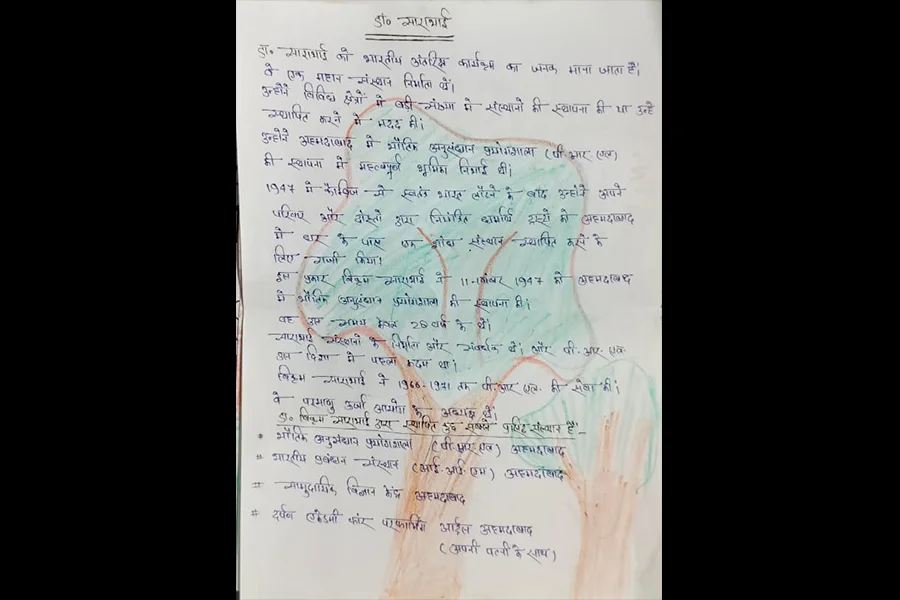 डा० साराभाई
डा० साराभाई को भारतीय अंतरिक्ष कार्यक्रम का जनक माना जाता है।
वे एक महान संस्थान निर्माता थे।
उन्होंने विविध क्षेत्रों में बड़ी संख्या में संस्थानों की स्थापना की या उन्हें
स्थापित करने में मदद की।
उन्होंने अहमदाबाद में भौतिक अनुसंधान प्रयोगशाला (पी.आर.एल)
की स्थापना में महत्वपूर्ण भूमिका निभाई थी।
1947 में कैम्ब्रिज से स्वतंत्र भारत लौटने के बाद उन्होंने अपने
परिवार और दोस्तों द्वारा नियंत्रित धर्मार्थ ट्रस्टों को अहमदाबाद
में घर के पास एक शोध संस्थान स्थापित करने के
लिए राजी किया।
इस प्रकार विक्रम साराभाई ने 11 नवंबर 1947 को अहमदाबाद
में भौतिक अनुसंधान प्रयोगशाला की स्थापना की।
वह उस समय केवल 28 वर्ष के थे।
साराभाई संस्थानों के निर्माता और संवर्धक थे। और पी.आर.एल
उस दिशा में पहला कदम था।
विक्रम साराभाई ने 1966-1971 तक पी.आर.एल. की सेवा की।
वे परमाणु ऊर्जा आयोग के अध्यक्ष थे।
डा० विक्रम साराभाई द्वारा स्थापित कुछ सबसे प्रसिद्ध संस्थान हैं:-
* भौतिक अनुसंधान प्रयोगशाला (पी.आर.एल) अहमदाबाद
# भारतीय प्रबंधन संस्थान (आई.आई.एम) अहमदाबाद
# सामुदायिक विज्ञान केंद्र अहमदाबाद
# दर्पन एकेडमी फॉर परफार्मिंग आर्ट्स अहमदाबाद
(अपनी पत्नी के साथ)